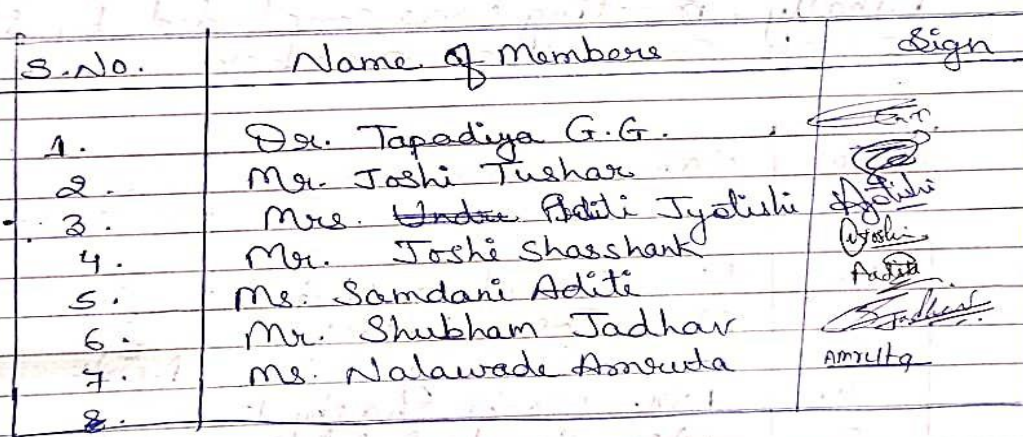 S.No. Name of Members Sign
1. Dr. Tapadiya G.G.
2. Mr. Joshi Tushar
3. Mrs. Aditi Jyotishi Jyotishi
4. Mr. Joshi Shasshank Joshi
5. Ms. Samdani Aditi Aaditi
6. Mr. Shubham Jadhav Jadhav
7. Ms. Nalawade Amruta Amrutta
8.